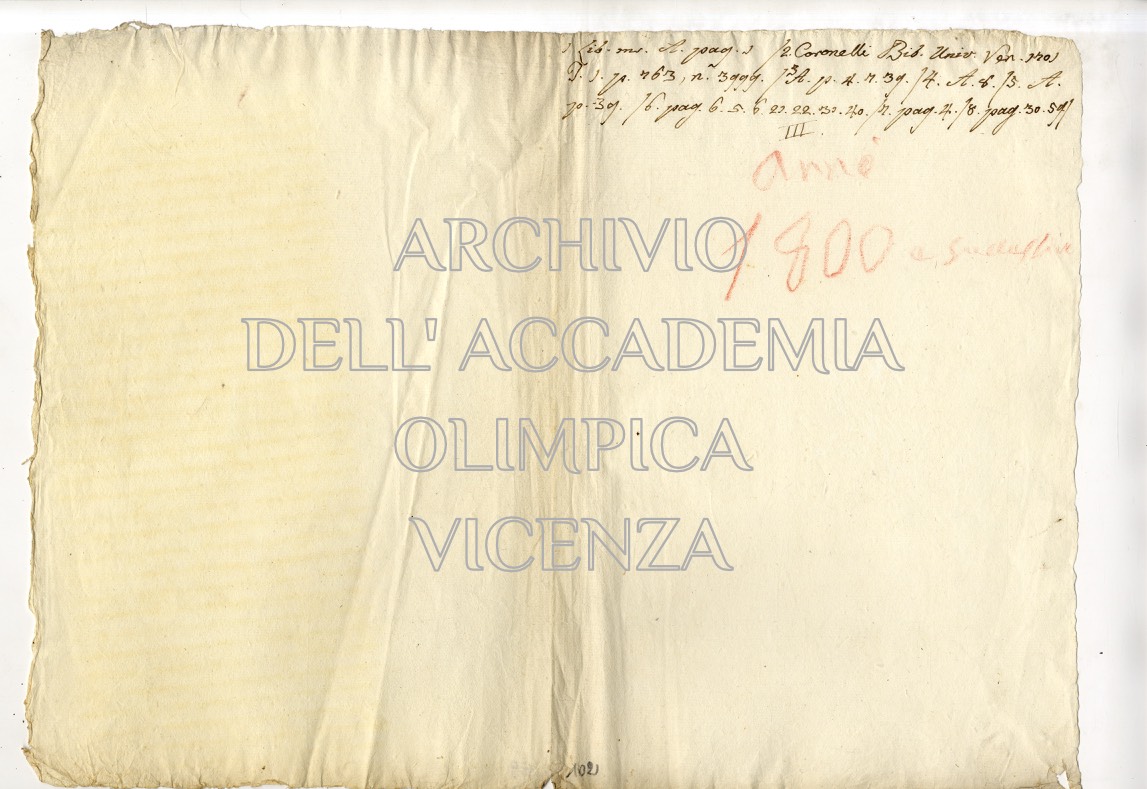 1 Lib. ms. A. pag. 1 /2. Coronelli Bib. Univ. Ven. 1701
T. 1. p. 763, n.° 3999. /3 A. p. 4. 7. 39. /4. A. 8. /5. A.
p. 39. /6. pag. 6. 5. 6. 21. 22. 31. 40. /7. pag. 4. /8. pag. 30. 59/
III.
anni
1800 e
ARCHIVIO
DELL' ACCADEMIA
OLIMPICA
VICENZA
102